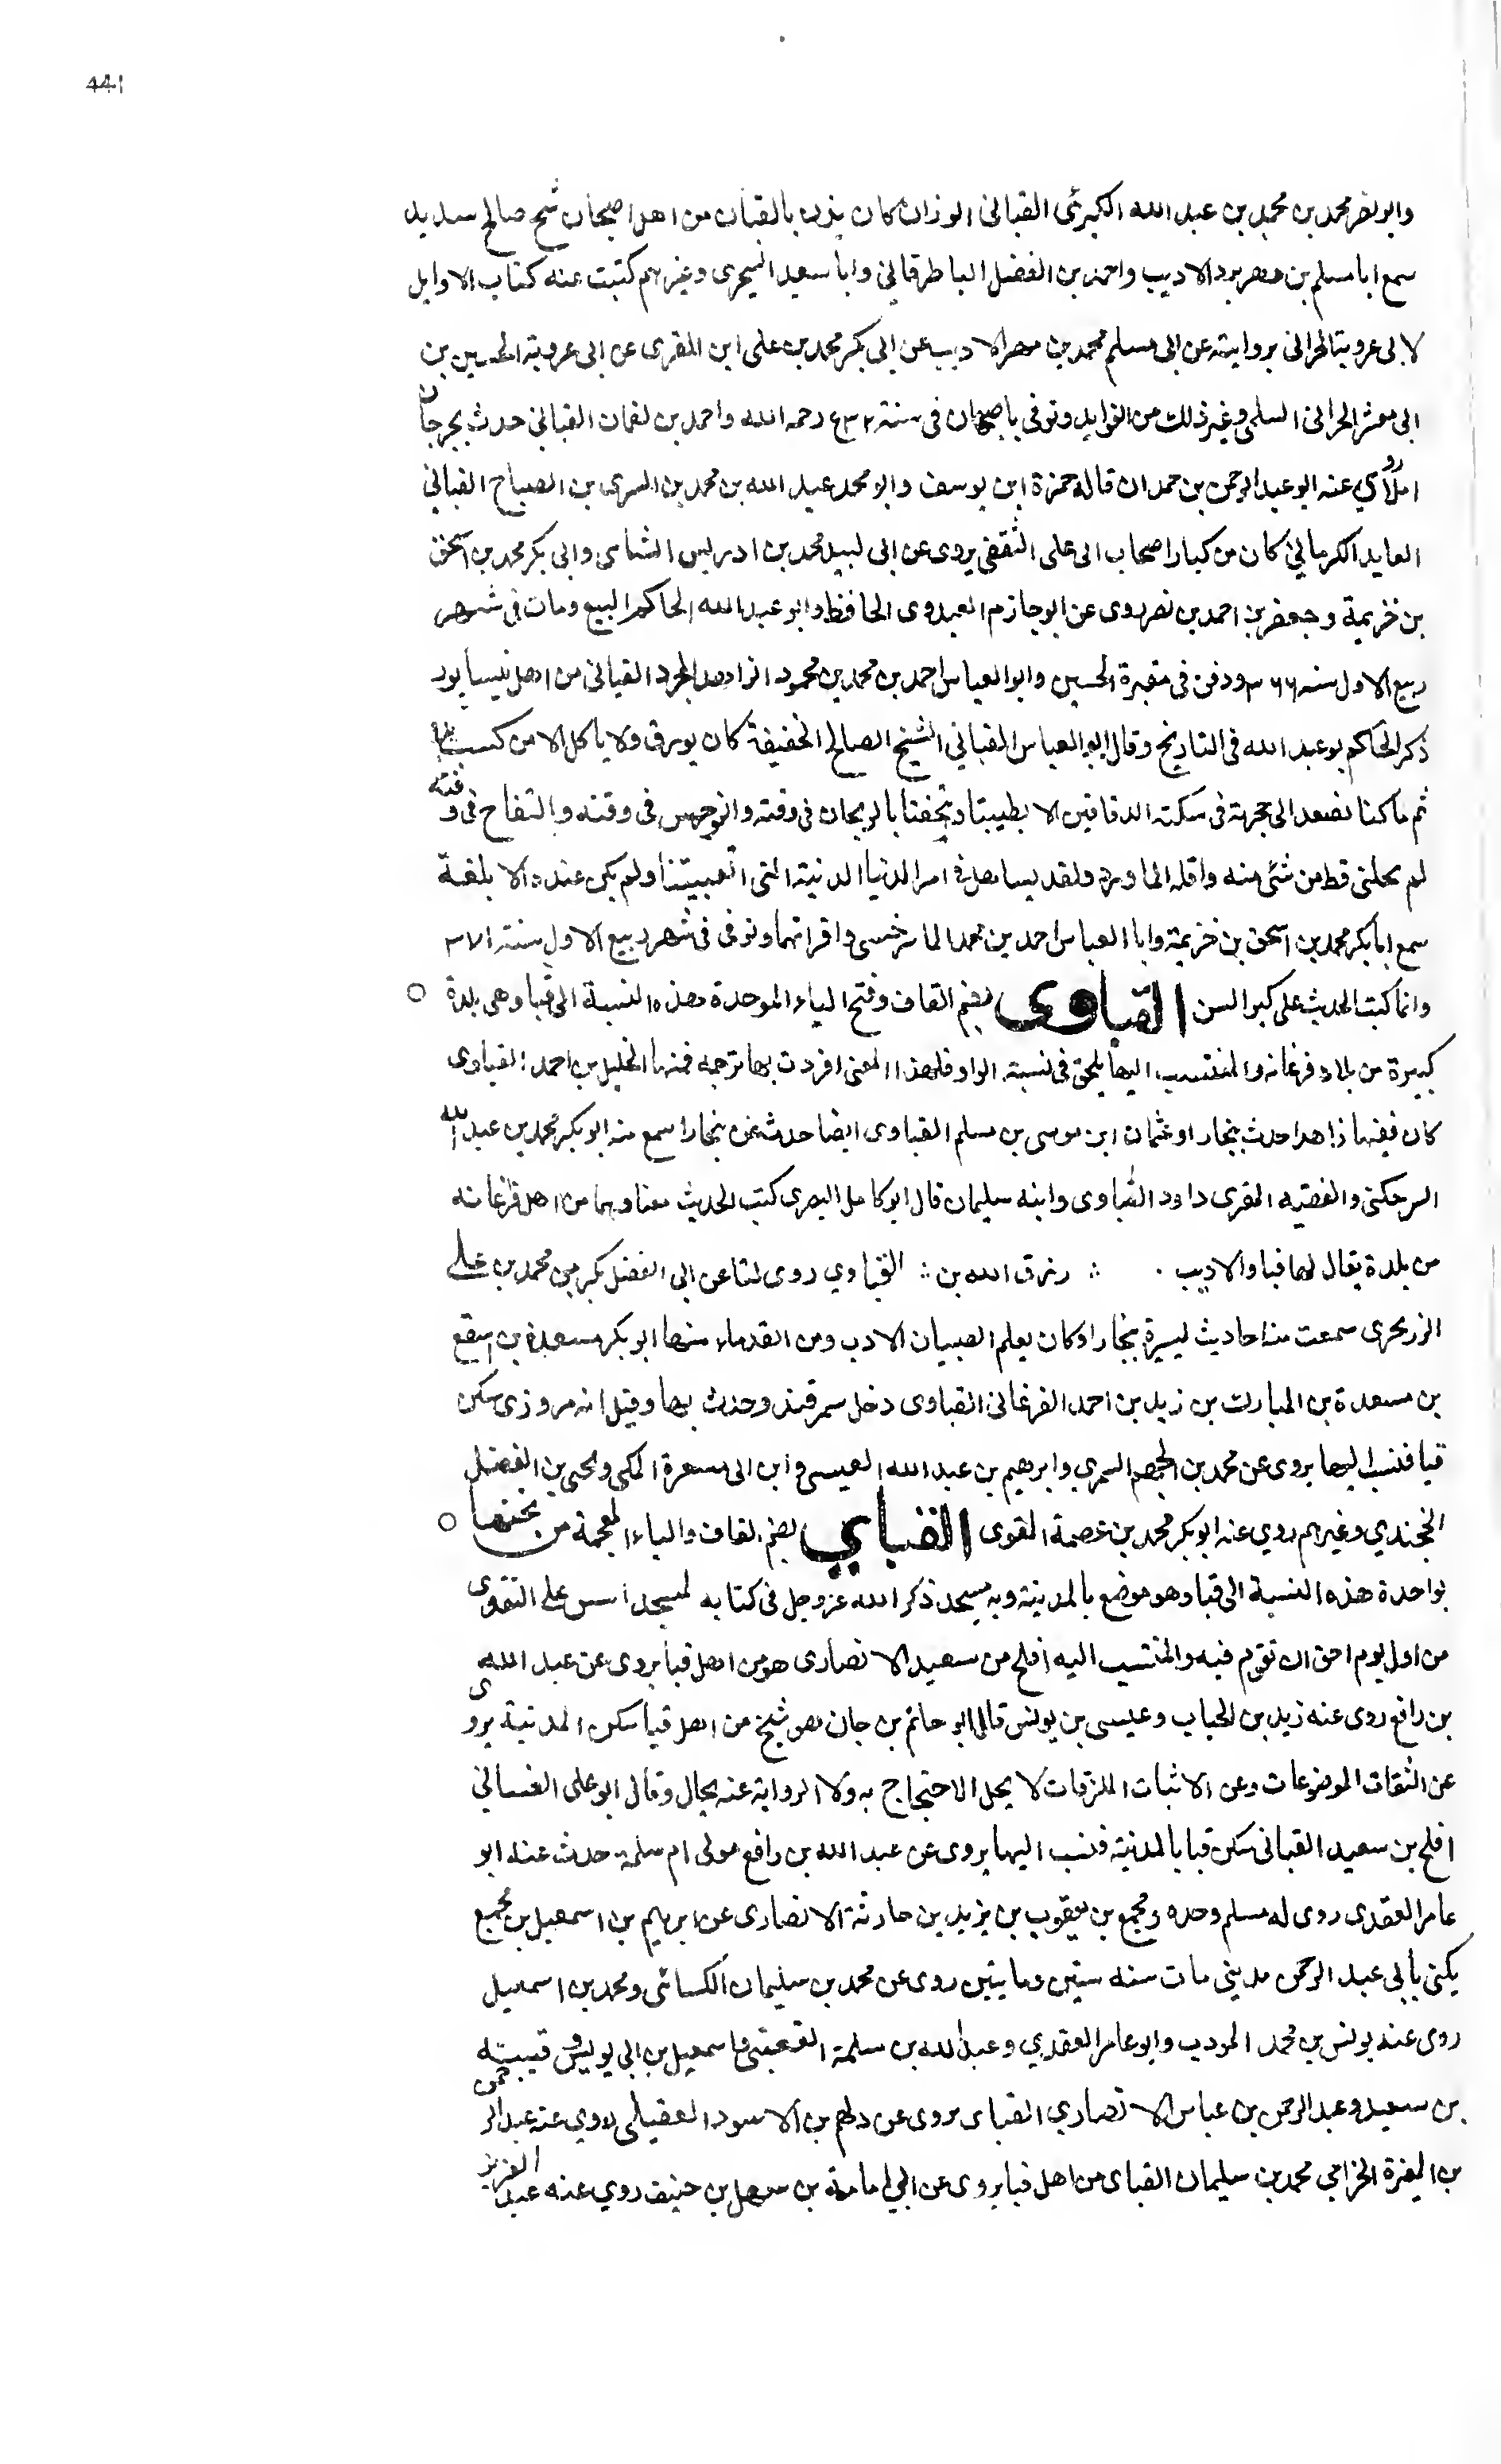 441
وابو نصر محمد بن محمد بن عبد الله الكبرئى القبانى الوزان كان يزن بالقبان من اهل اصبهان شيخ صالح سديد
سمع ابا مسلم بن مهربرد الاديب واحمد بن الفضل الباطرقانى وابا سعيد وغيرهم كتبت عنه كتاب الاوايل
لابى عروبة الحرانى بروايته عن ابى مسلم محمد بن مهر الاديب عن ابى بكر محمد بن على ابن المقرى عن ابى عروبة الحسين بن
ابى معشر الحرانى السلمى وغير ذلك من الفوايد وتوفى باصبهان فى سنة رحمه الله واحمد بن لقمان القبانى حدث بجرجان
املا روي عنه ابو عبد الرحمن بن حمدان قاله حمزة ابن يوسف وابو محمد عبد الله بن محمد بن السرى بن الصباح القبانى
العابد الكرمانى كان من كبار اصحاب ابى على الثقفى يروى عن ابى لبيد محمد بن ادريس الشامى وابى بكر محمد بن اسحق
بن خزيمة وجعفر بن احمد بن نصر روى عن ابو حازم العبدوى الحافظ وابو عبد الله الحاكم البيع ومات فى شهر
ربيع الاول سنه ٣٦٦ ودفن فى مقبرة الحسين وابو العباس احمد بن محمد بن محمود الزاهد المجرد القبانى من اهل نيسابور
ذكر الحاكم بو عبد الله فى التاريخ وقال ابو العباس القبانى الشيخ الصالح الحقيقة كان يورق ولا ياكل الا من كسب يده
ثم ما كنا نصعد الى حجرته فى سكة الدقاقين الا بطيبنا ويتحفنا بالريحان فى وقته والنرجس فى وقته والتفاح فى وقته
لم يخلنى قط من شئ منه واقله الماورد ولقد فى امر الدنيا الدنية التى اتعبتنا ولم يكن عنده الا بلغة
سمع ابا بكر محمد بن اسحق بن خزيمة وابا العباس احمد بن محمد الماسرخسى واقرانهما وتوفى فى شهر ربيع الاول سنة
وانما كتب الحديث على كبر السن القباوى بضم القاف وفتح الباء الموحدة هذه النسبة الى قبا وهى بلدة
كبيرة من بلاد فرغانه والمنتسب اليها يلحق فى نسبته الواو فلهذا المعنى افردت بها ترجمه فمنها الخليل بن احمد القباوى
كان فقيها زاهدا حدث ببخارا وعثمان ابن موسى بن مسلم القباوى ايضا حدث عن بخارا سمع منه ابو بكر محمد بن عبد الله
السرحكتى والفقيه المقرى داود القباوى وابنه سليمان قال ابو كامل البصرى كتب الحديث معنا وهما من اهل فرغانه
من بلدة يقال لها قبا والاديب . ∴ رزق الله بن ∴ القباوي روى لنا عن ابى الفضل بكر بن محمد بن على
الزرنجرى سمعت منه احاديث يسيرة ببخارا وكان يعلم الصبيان الادب ومن القدماء منها ابو بكر مسعدة بن اسقع
بن مسعدة بن المبارك بن زيد بن احمد الفرغانى القباوى دخل سمرقند وحدث بها وقيل انه مروزى سكن
قبا فنسب اليها يروى عن محمد بن الجهم السمرى وابرهيم بن عبد الله العيسى وابن ابى مسرة المكى ويحيى بن الفضل
الخجندي وغيرهم روي عنه ابو بكر محمد بن عصمة المقوى القباي بضم القاف والباء المعجمة من تحتها
بواحدة هذه النسبة الى قبا وهو موضع بالمدينة وبه مسجد ذكر الله عز وجل فى كتابه لمسجد أسس على التقوى
من اول يوم احق ان تقوم فيه والمنتسب اليه افلح من سعيد الانصارى هو من اهل قبا يروى عن عبد الله
بن رافع روى عنه زيد بن الحباب وعيسى بن يونس قال ابو حاتم بن حبان هو شيخ من اهل قبا سكن المدنية يروى
عن الثقات الموضوعات وعن الاثبات الملزقات لا يحل الاحتجاج به ولا الرواية عنه بحال وقال ابو على الغسانى
افلح بن سعيد القبانى سكن قبا بالمدنية فنسب اليها يروى عن عبد الله بن رافع مولى ام سلمة حدث عنه ابو
عامر العقدى روى له مسلم وحده ومجمع بن يعقوب بن يزيد بن حارثة الانصارى عن ابرهيم بن اسمعيل بن مجمع
يكنى بابى عبد الرحمن مدينى مات سنه ستين وما يتين روى عن محمد بن سليمان الكسائى ومحمد بن اسمعيل
روى عنه يونس بن محمد المودب وابو عامر العقدي وعبد الله بن سلمة القعنبى واسمعيل بن ابى يونس وقتيبته
بن سعيد وعبد الرحمن بن عباس الانصاري القباى يروى عن دلهم بن الاسود العقيلى روي عنه عبد الرحمن
بن المغيرة الحزامى محمد بن سليمان القباى من اهل قبا يروى عن ابى امامة بن سهل بن حنيف روي عنه عبد العزيز